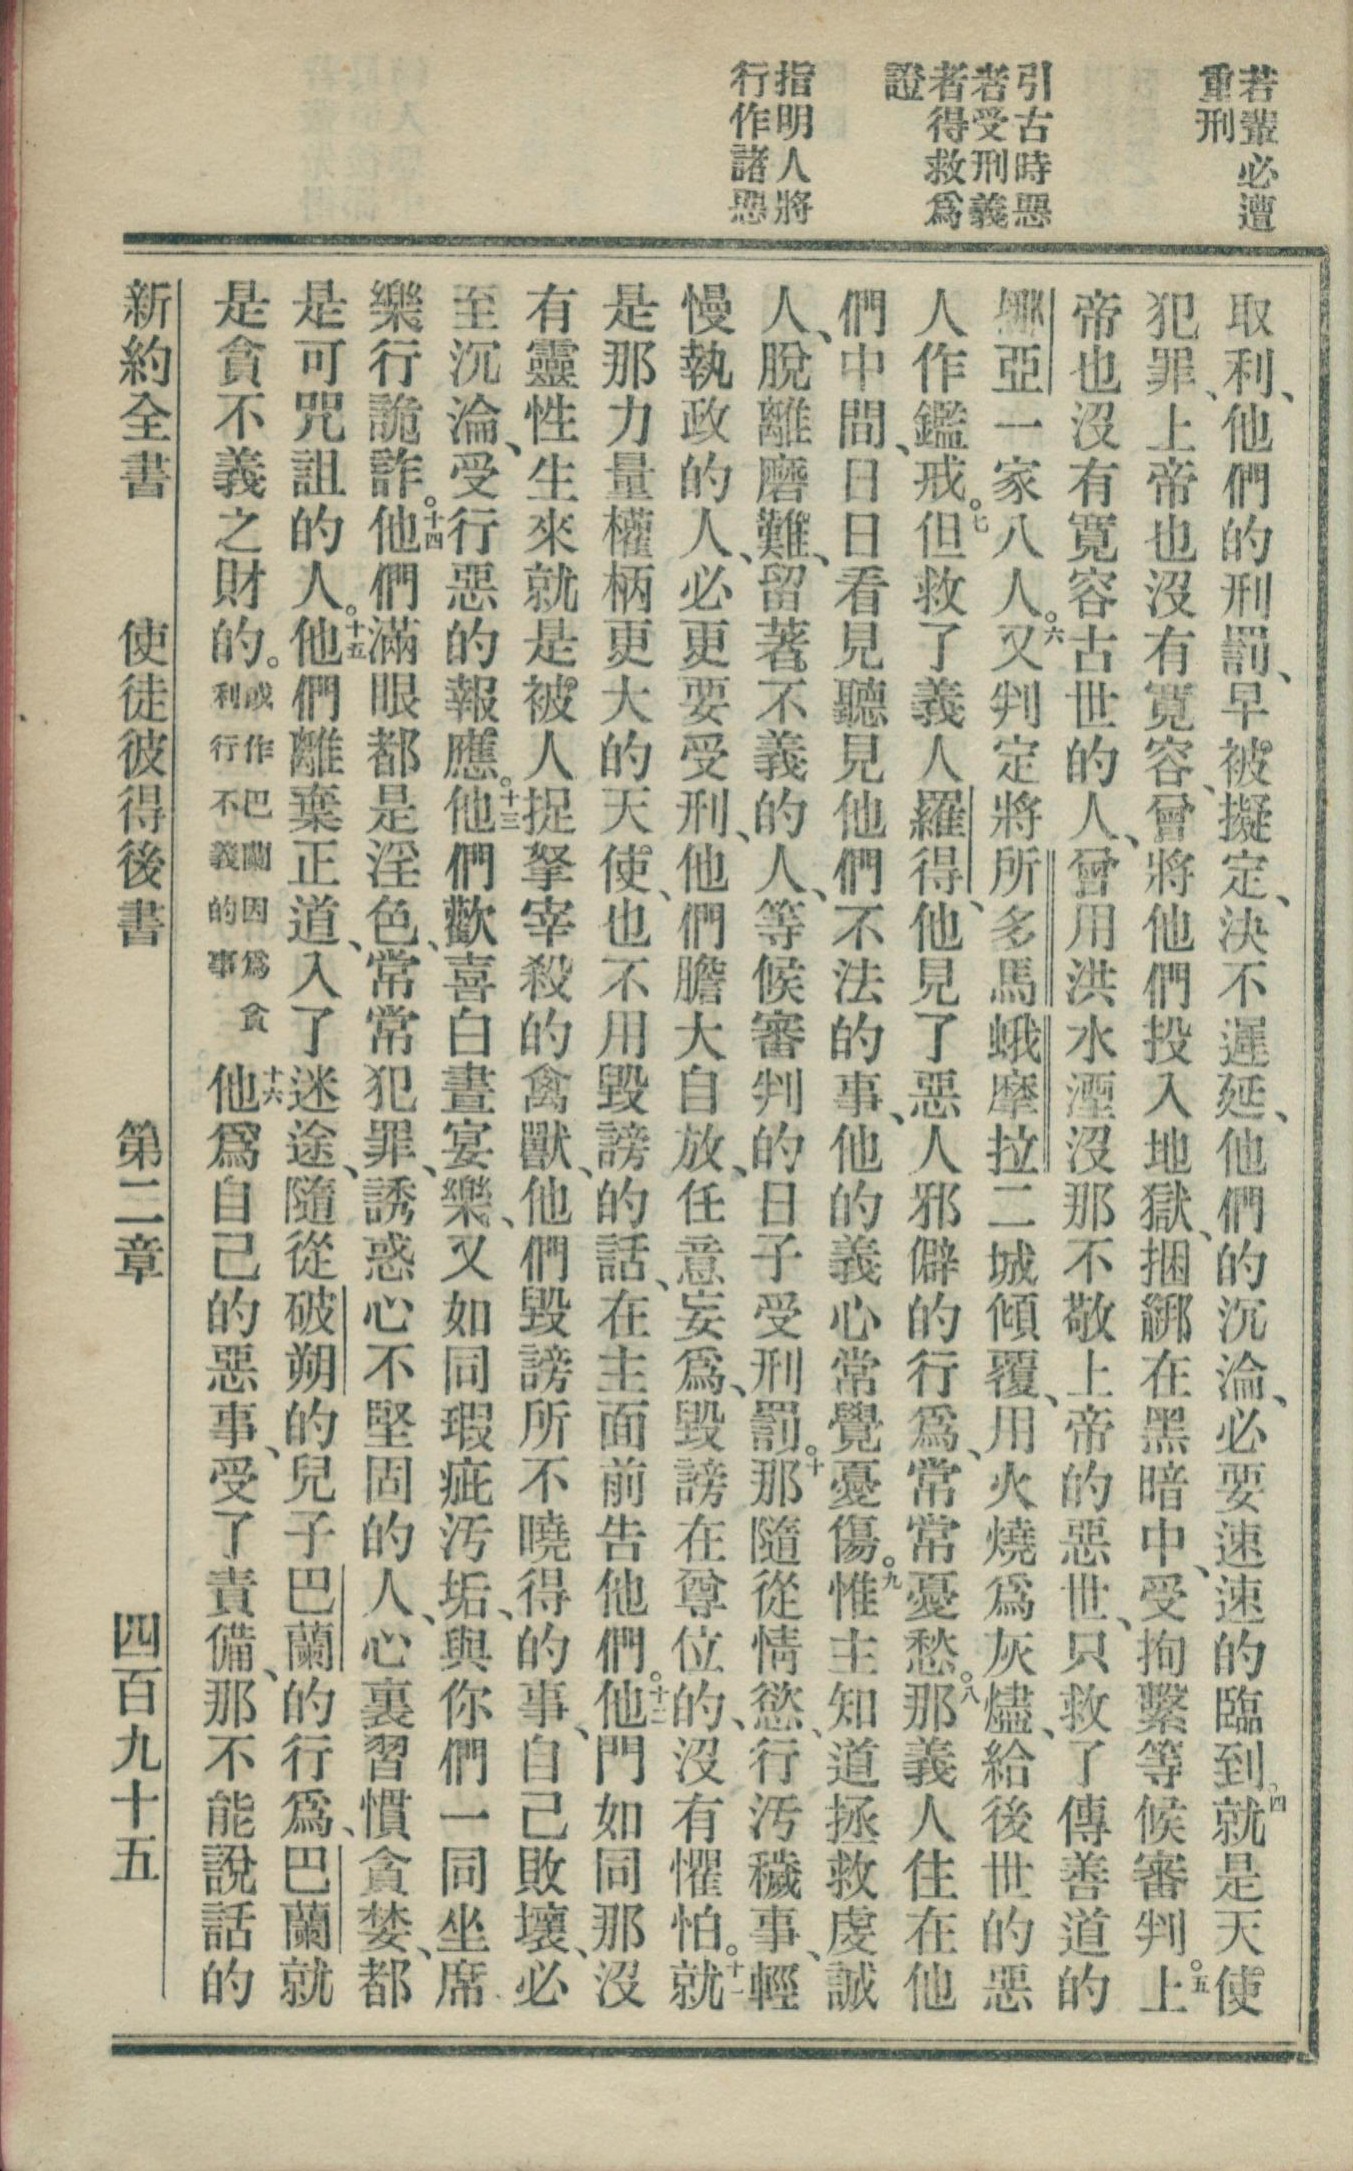 若叢必遭
重刑
引古時惡
者受刑義
者得救爲
證
指明人將
行作諸惡
取利、他們的刑罰、早被擬定、決不遲延、他們的沉淪、必要速速的臨到。四就是天使
犯罪、上帝也沒有寬容、曾將他們投入地獄、捆綁在黑暗中、受拘繫等候審判。五上
帝也沒有寬容古世的人、曾用洪水湮沒那不敬上帝的惡世、只救了傳善道的
挪亞一家八人。六又判定將所多馬蛾摩拉二城傾覆、用火燒爲灰燼、給後世的惡
人作鑑戒。七但救了義人羅得、他見了惡人邪僻的行爲、常常憂愁。八那義人住在他
們中間、日日看見聽見他們不法的事、他的義心常覺憂傷。九惟主知道拯救虔誠
人、脫離磨難、留著不義的人、等候審判的日子受刑罰。十那隨從情慾、行污穢事、輕
慢執政的人、必更要受刑、他們膽大自放、任意妄爲、毀謗在尊位的、沒有懼怕。十一就
是那力量權柄更大的天使、也不用毀謗的話、在主面前告他們。十二他門如同那沒
有靈性生來就是被人捉拏宰殺的禽獸、他們毀謗所不曉得的事、自己敗壞、必
至沉淪、受行惡的報應。十三他們歡喜白晝宴樂、又如同瑕疵污垢、與你們一同坐席
樂行詭詐。十四他們滿眼都是淫色、常常犯罪、誘惑心不堅固的人、心裏習慣貪婪、都
是可咒詛的人。十五他們離棄正道、入了迷途、隨從破朔的兒子巴蘭的行爲、巴蘭就
是貪不義之財的。或作巴蘭因爲貪利行不義的事十六他爲自己的惡事、受了責備、那不能說話的
新約全書　使徒彼得後書　第二章　四百九十五